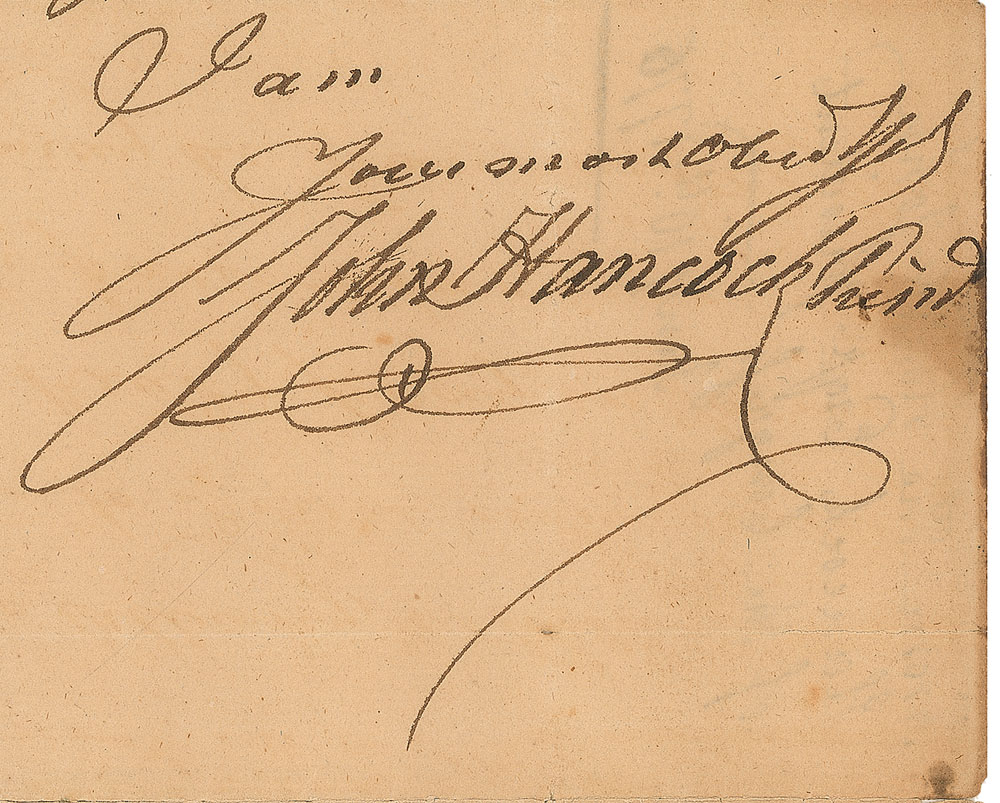 I am
Your most Obed
John Hancock Presid